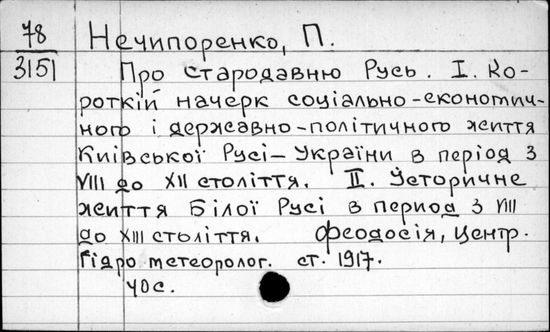 78
3151
Нечипоренко, П.
Про стародавню Русь. I. Ко-
роткій начерк соціально-економич-
ного і державно-політичного життя
Київської Русі – України в період з
VIII до XII століття. II. Історичне
життя Білої Русі в период з VIII
до XIII століття. Феодосія, Центр.
Гідрометеоролог. ст. 1917.
40с.